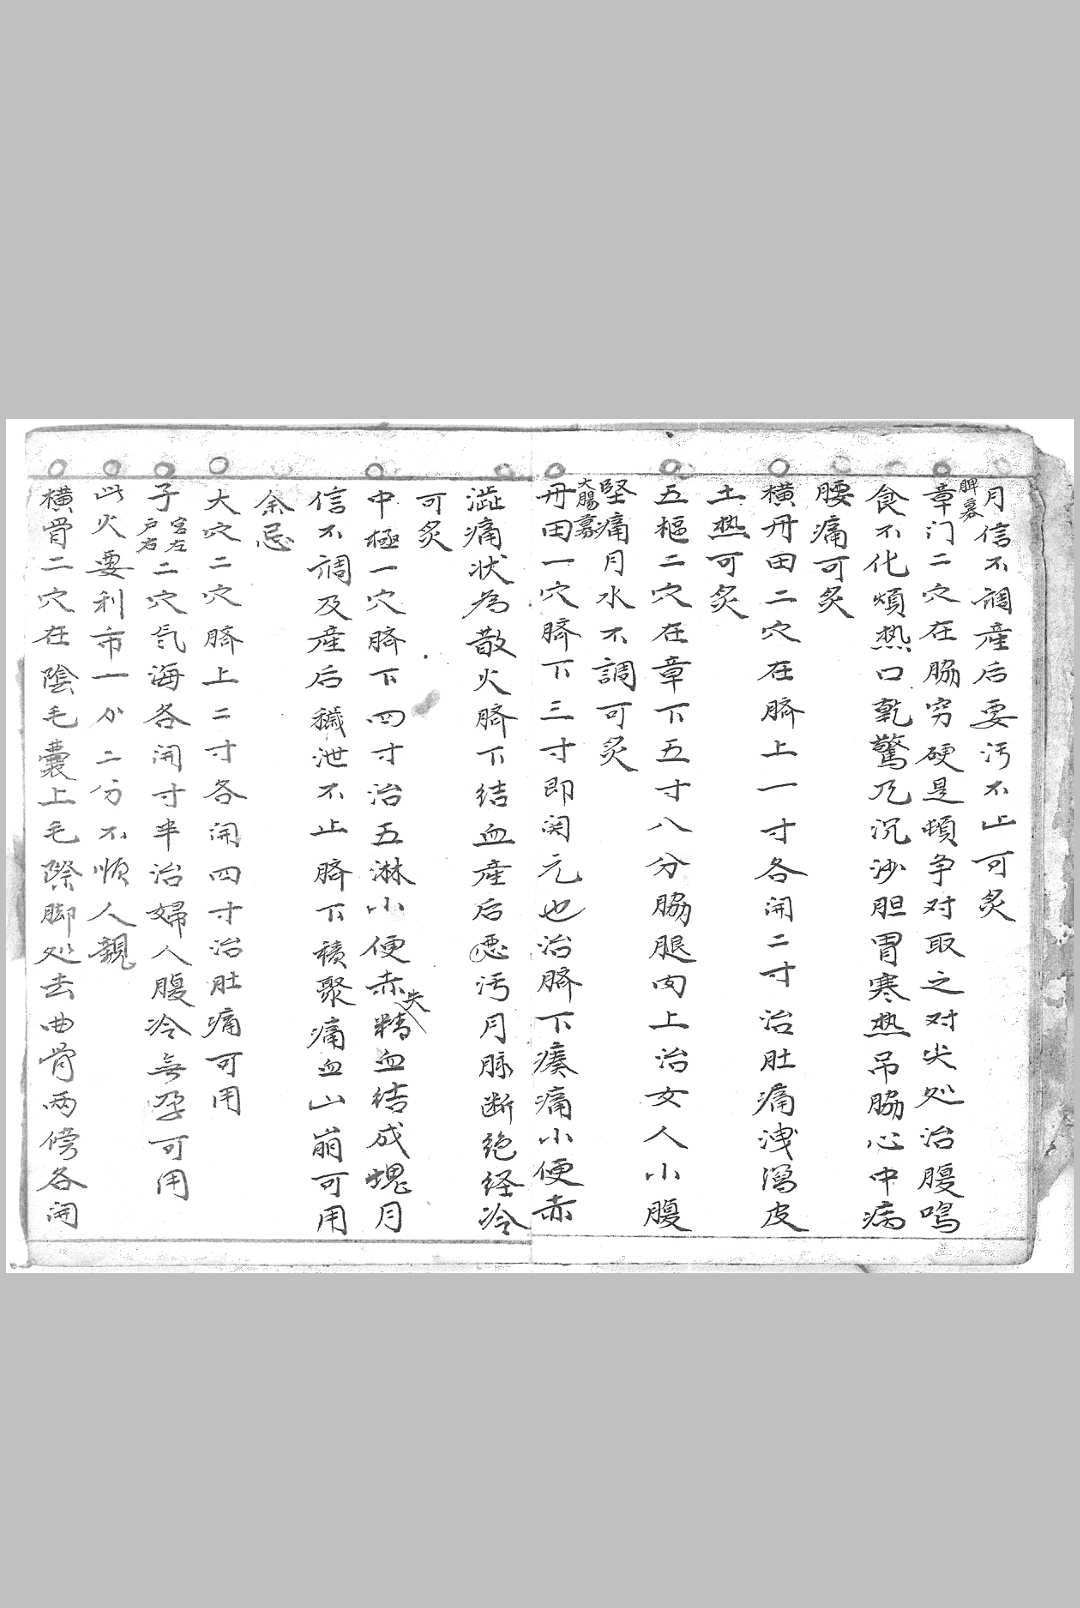 月信不調產后要污不止可炙
脾募
章门二穴在脇穷硬是頓争对取之对尖处治腹鳴
食不化煩热口乾驚乃沉沙胆胃寒热吊脇心中病
腰痛可炙
橫丹田二穴在臍上一寸各開二寸治肚痛洩瀉皮
土热可炙
五樞二穴在章下五寸八分脇腿肉上治女人小腹
堅痛月水不調可炙
大腸募
丹田一穴臍下三寸即関元也治臍下痛小便赤
澁痛状為散火臍下結血產后惡污月脉断绝经冷
可炙
中極一穴臍下四寸治五淋小便赤失精血结成塊月
信不調及產后穢泄不止臍下積聚痛血山崩可用
余忌
大穴二穴臍上二寸各開四寸治肚痛可用
子宮左户右二穴氣海各開寸半治婦人腹冷無孕可用
此火要利市一分二分不順人親
橫骨二穴在陰毛囊上毛際脚处去曲骨两傍各開